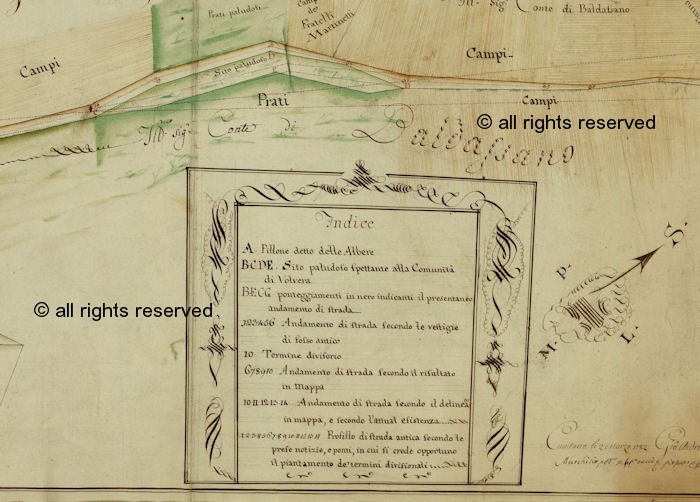 Prati paludosi
campi
de'
Fratelli
Martinelli
Ill. Sig.
Conte di Baldassano
Campi
Sito paludoso
Campi
Prati
Campi
© all rights reserved
Ill. Sig.
Conte di Baldassano
Indice
A. Pillone detto delle Albere
BCDE. Sito paludoso spettante alla Comunità
di Volvera
BECG ponteggiamenti in nero indicanti il presentaneo
andamento di strada
3.2.5.4.5.6 Andamento di strada secondo le vestigie
di fosso antico
10. Termine divisorio
6.7.8.9.10 Andamento di strada secondo il risultato
in Mappa
10.11.12.13.14 Andamento di strada secondo il delinea
in mappa, e secondo l'attual esistenza
Profillo di strada antica secondo le
prese notizie, e ponti, in cui si crede opportuno
il piantamento de' termini divisionali
© all rights reserved
P.
S.
M.
L.